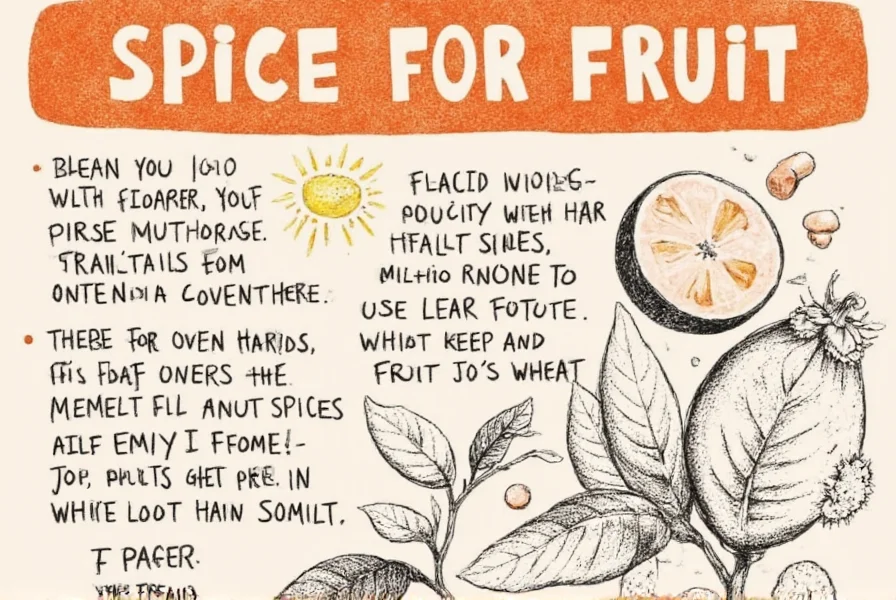 SPICE FOR FRUIT
BLEAN YOU
WLTH FIOARER, YOUF
PIRSE MUTHORASE.
TRAIL'TAILS FOM
COVENTHERE.
THEBE FOR OVEN HARIDS,
FDAF ONERS THE
MEMELT FLL ANUT SPICES
AILF EMIY I FFOME!-
JOP, GHET PRE. IN
WHITE LOOT HAIN SOMILT.
F PAGER.
FLACID
POUCITY WITH HAR
HFALLT
RNONE TO
USE LEAR FOTUTE.
WHIOT KEEP AND
FRUIT JO'S WHEAT